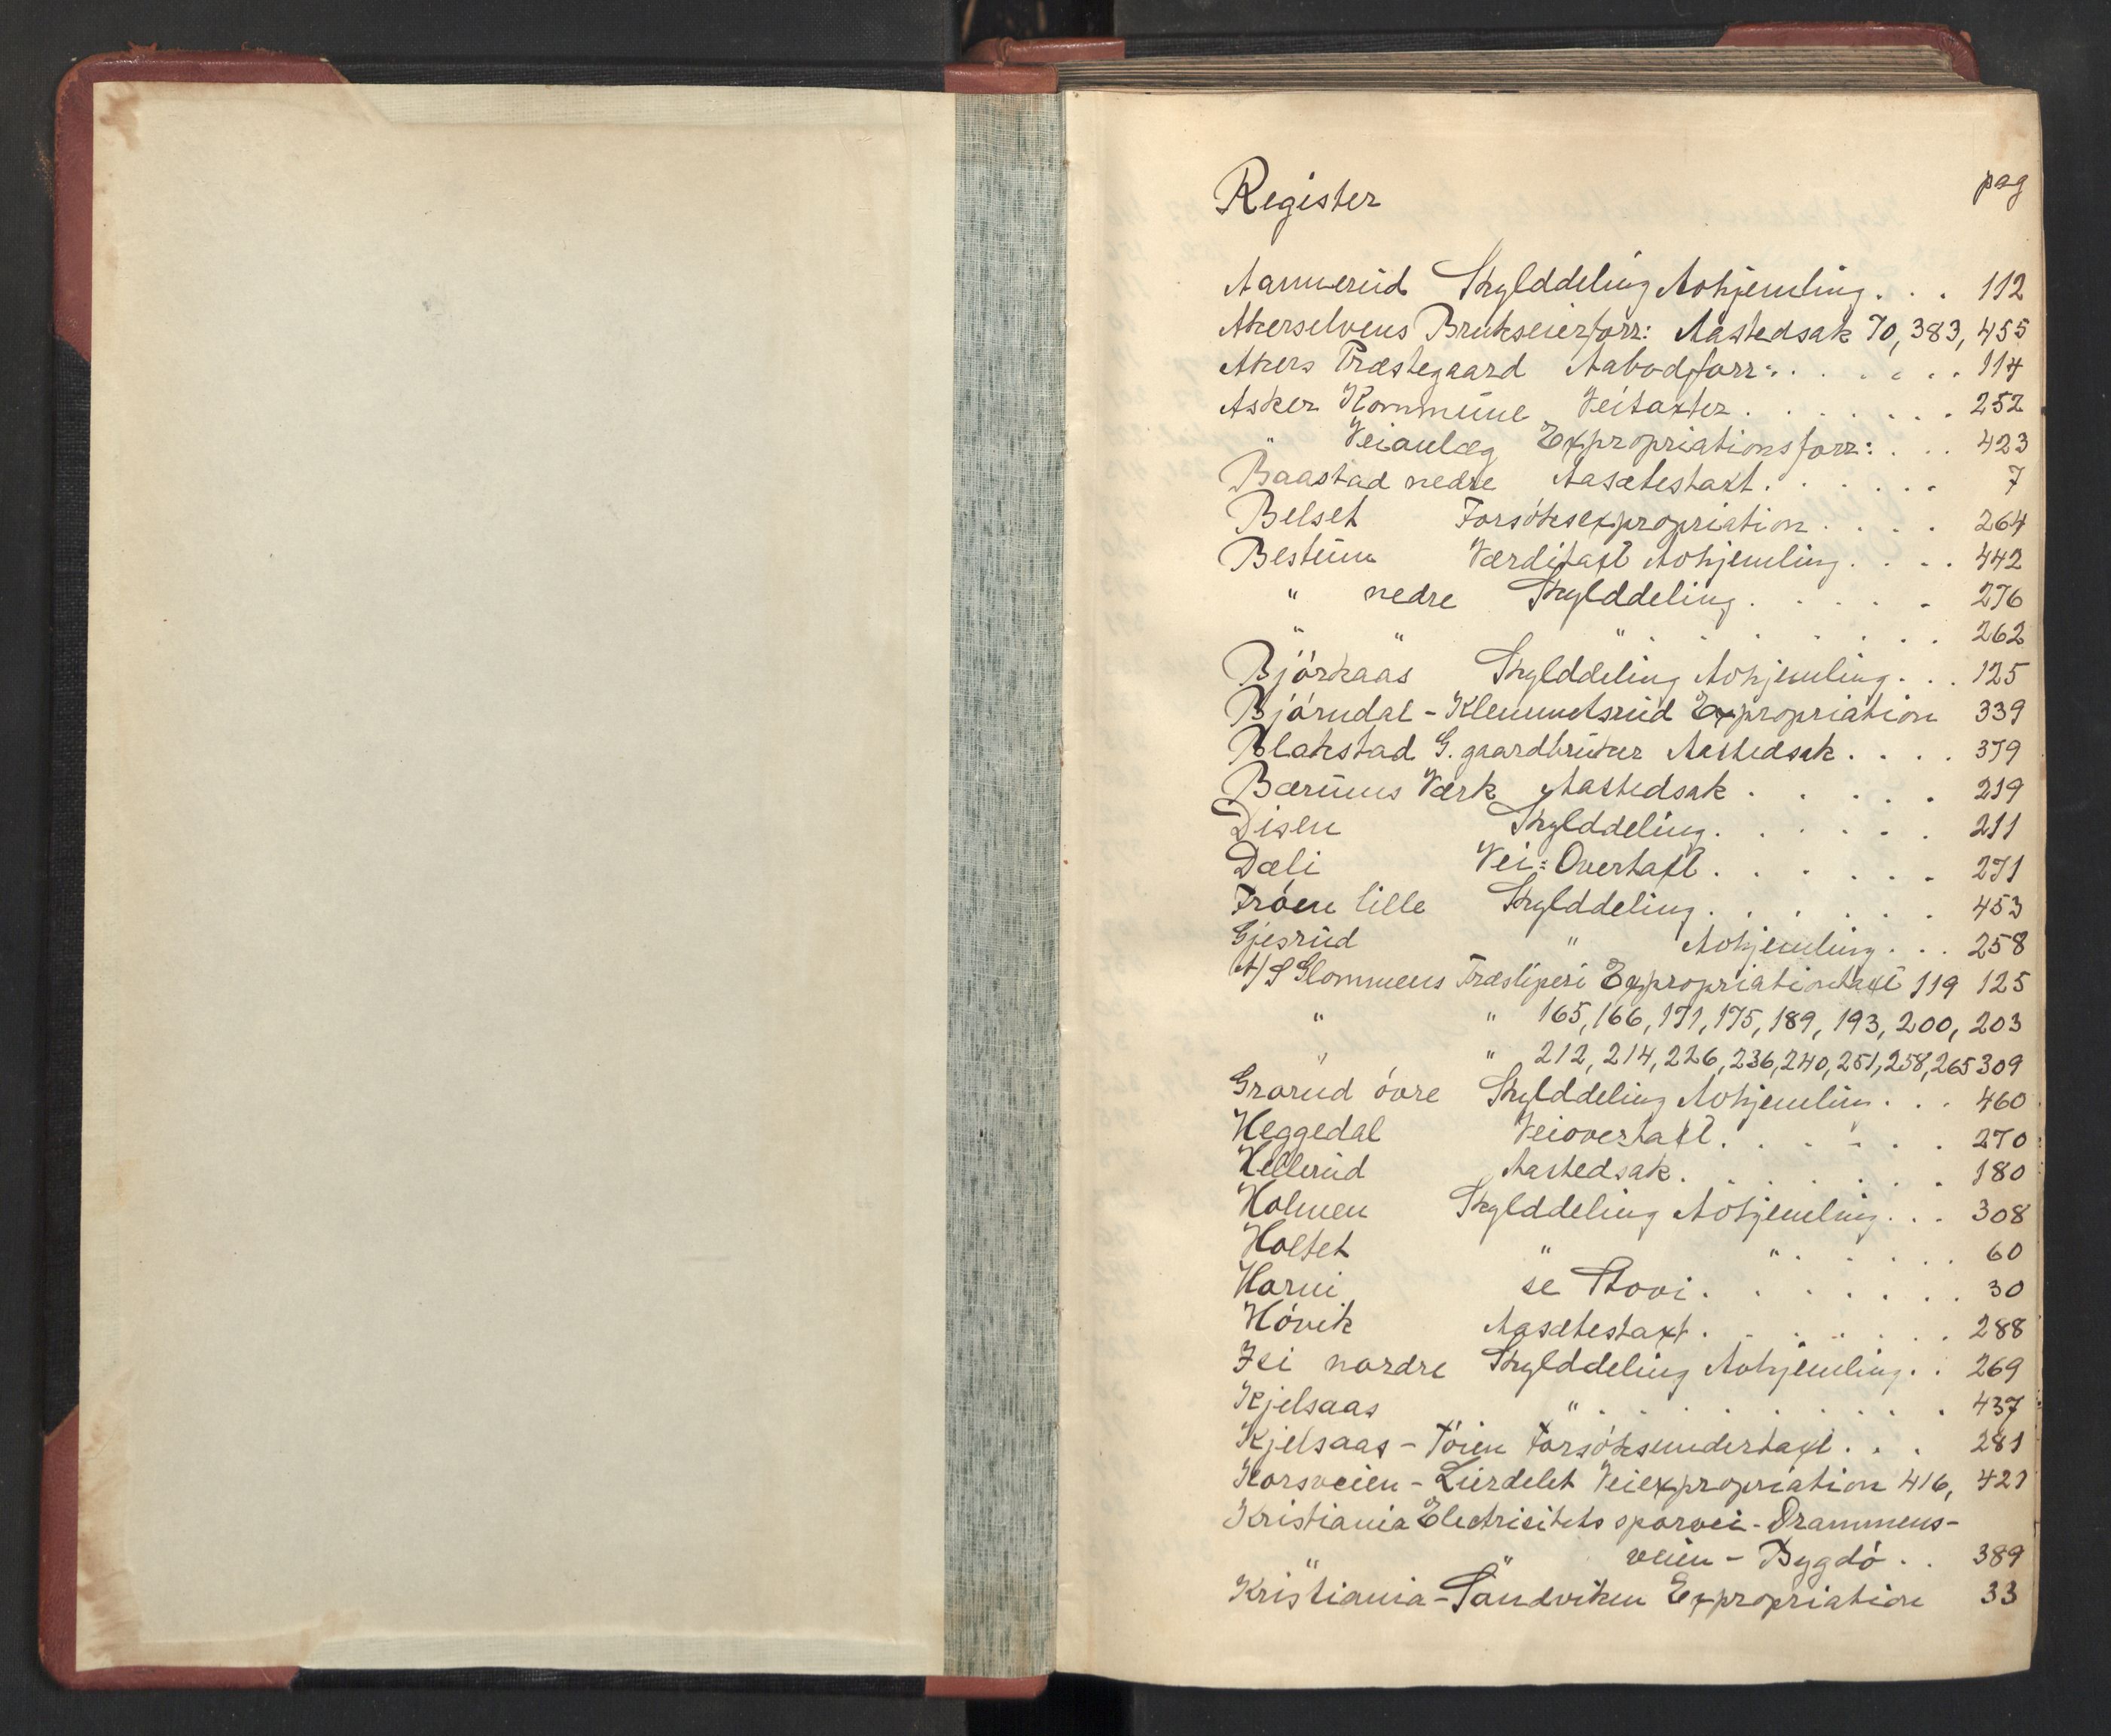 Register pag
Aamerud Skylddeling Avhjemling . . . 112
Akerselvens Brukseierforr: Aastedsak 70, 383, 455
Akers Præstegaard Aabodforr: . . . . . . 114
Asker Kommune Veitaxter . . . . . . . 252
" Veianlæg Expropriationsforr: . . . 423
Baastad nedre Aasætestaxt . . . . . . 7
Belset Forsöksexpropriation . . . . 264
Bestum Værditaxt Avhjemling . . . . 442
" nedre Skylddeling . . . . . 276
" " " . . . . . . . . 262
Björkaas Skylddeling Avhjemling . . . 125
Björndal - Klemmetsrud Expropriation 339
Blakstad G. gaardbruker Aastedsak . . . . 379
Bærums Værk Aastedsak . . . . . 219
Disen Skylddeling . . . . . . 211
Dæli Vei: Overtaxt . . . . . . 271
Fröen lille Skylddeling . . . . . . 453
Gjesrud " Avhjemling . . . 258
A/S Glommens Træsliperi Expropriationtaxt 119 125
" " 165, 166, 171, 175, 189, 193, 200, 203
" " 212, 214, 226, 236, 240, 251, 258, 265 309
Grorud övre Skylddeling Avhjemlin . . . 460
Heggedal Veiovertaxt . . . . . . 270
Hellerud Aastedsak . . . . . . . 180
Holmen Skylddeling Avhjemling . . . 308
Holtet " " . . . . . 60
Horni se Stovi . . . . . . . 30
Hövik Aasætestaxt . . . . . . . 288
Isi nordre Skylddeling Avhjemling . . 269
Kjelsaas " . . . . . . . . . 437
Kjelsaas - Töien Forsöksundertaxt . . . 281
Korsveien - Lierdelet Veiexpropriation 416, 421
Kristiania Electricitets sporvei - Drammens-
" " veien - Bygdö . . 389
Kristiania - Sandviken Expropriation 33